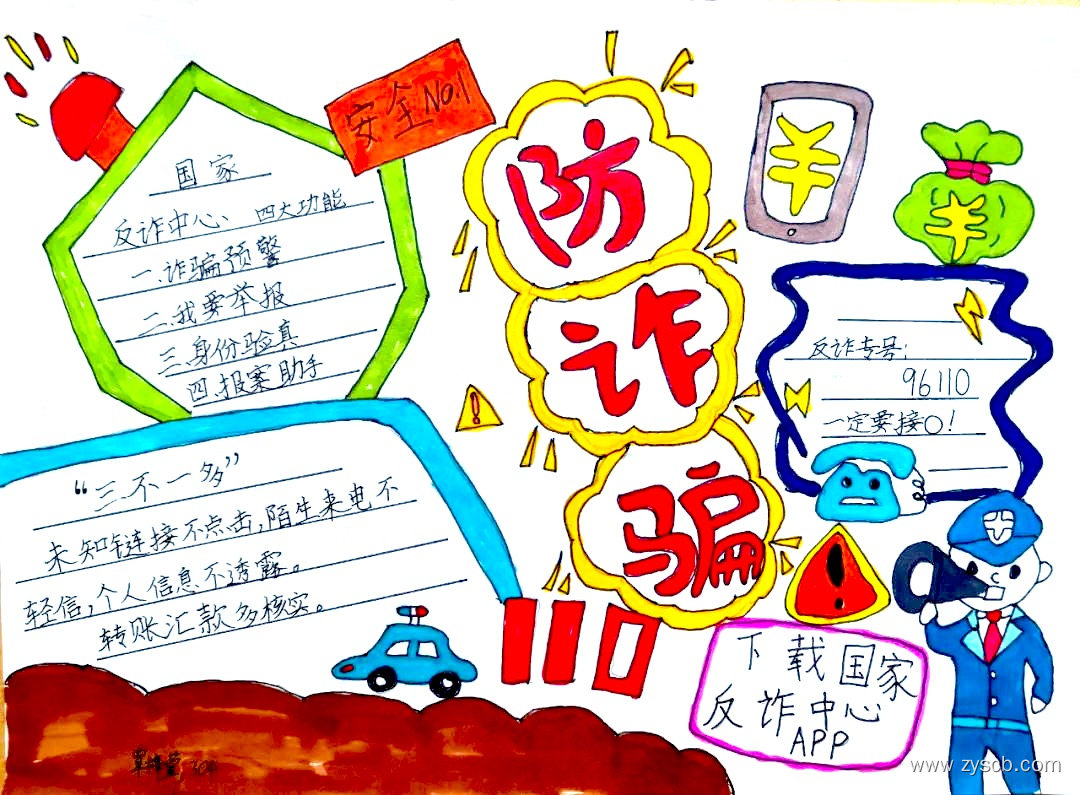 安全 No.1
国家
反诈中心、四大功能
一.诈骗预警
二.我要举报
三.身份验真
四.报案助手
防
诈
骗
¥
¥
反诈专号:
96110
一定要接〇!
“三不一多”
未知链接不点击,陌生来电不
轻信,个人信息不透露。
转账汇款多核实。
110
下载国家
反诈中心
APP
www.zyscb.com